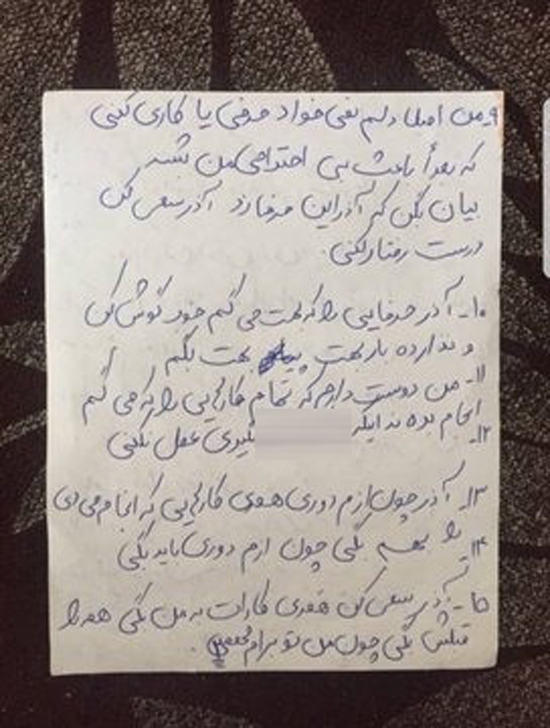 ۹- من اصلا دلم نمی خواد حرفی یا کاری کنی
که بعداً باعث بی احترامی من بشه
بیان بگن که آذر این حرفا زد آذر سعی کن
درست رفتار کنی.
۱۰- آذر حرفایی را که بهت می گم خوب گوش کن
و نذار ده بار بهت بگم
۱۱- من دوست دارم که تمام کارایی را که می گم
انجام بده نه اینکه
۱۲- بگیری عمل نکنی
۱۳- آذر چون ازم دوری همه ی کارایی که انجام می دی
را بهم بگی چون ازم دوری باید بگی
۱۴-
۱۵- آذر سعی کن همه ی کارات به من بگی همه را
قبلش بگی چون من تو برام مهمی.